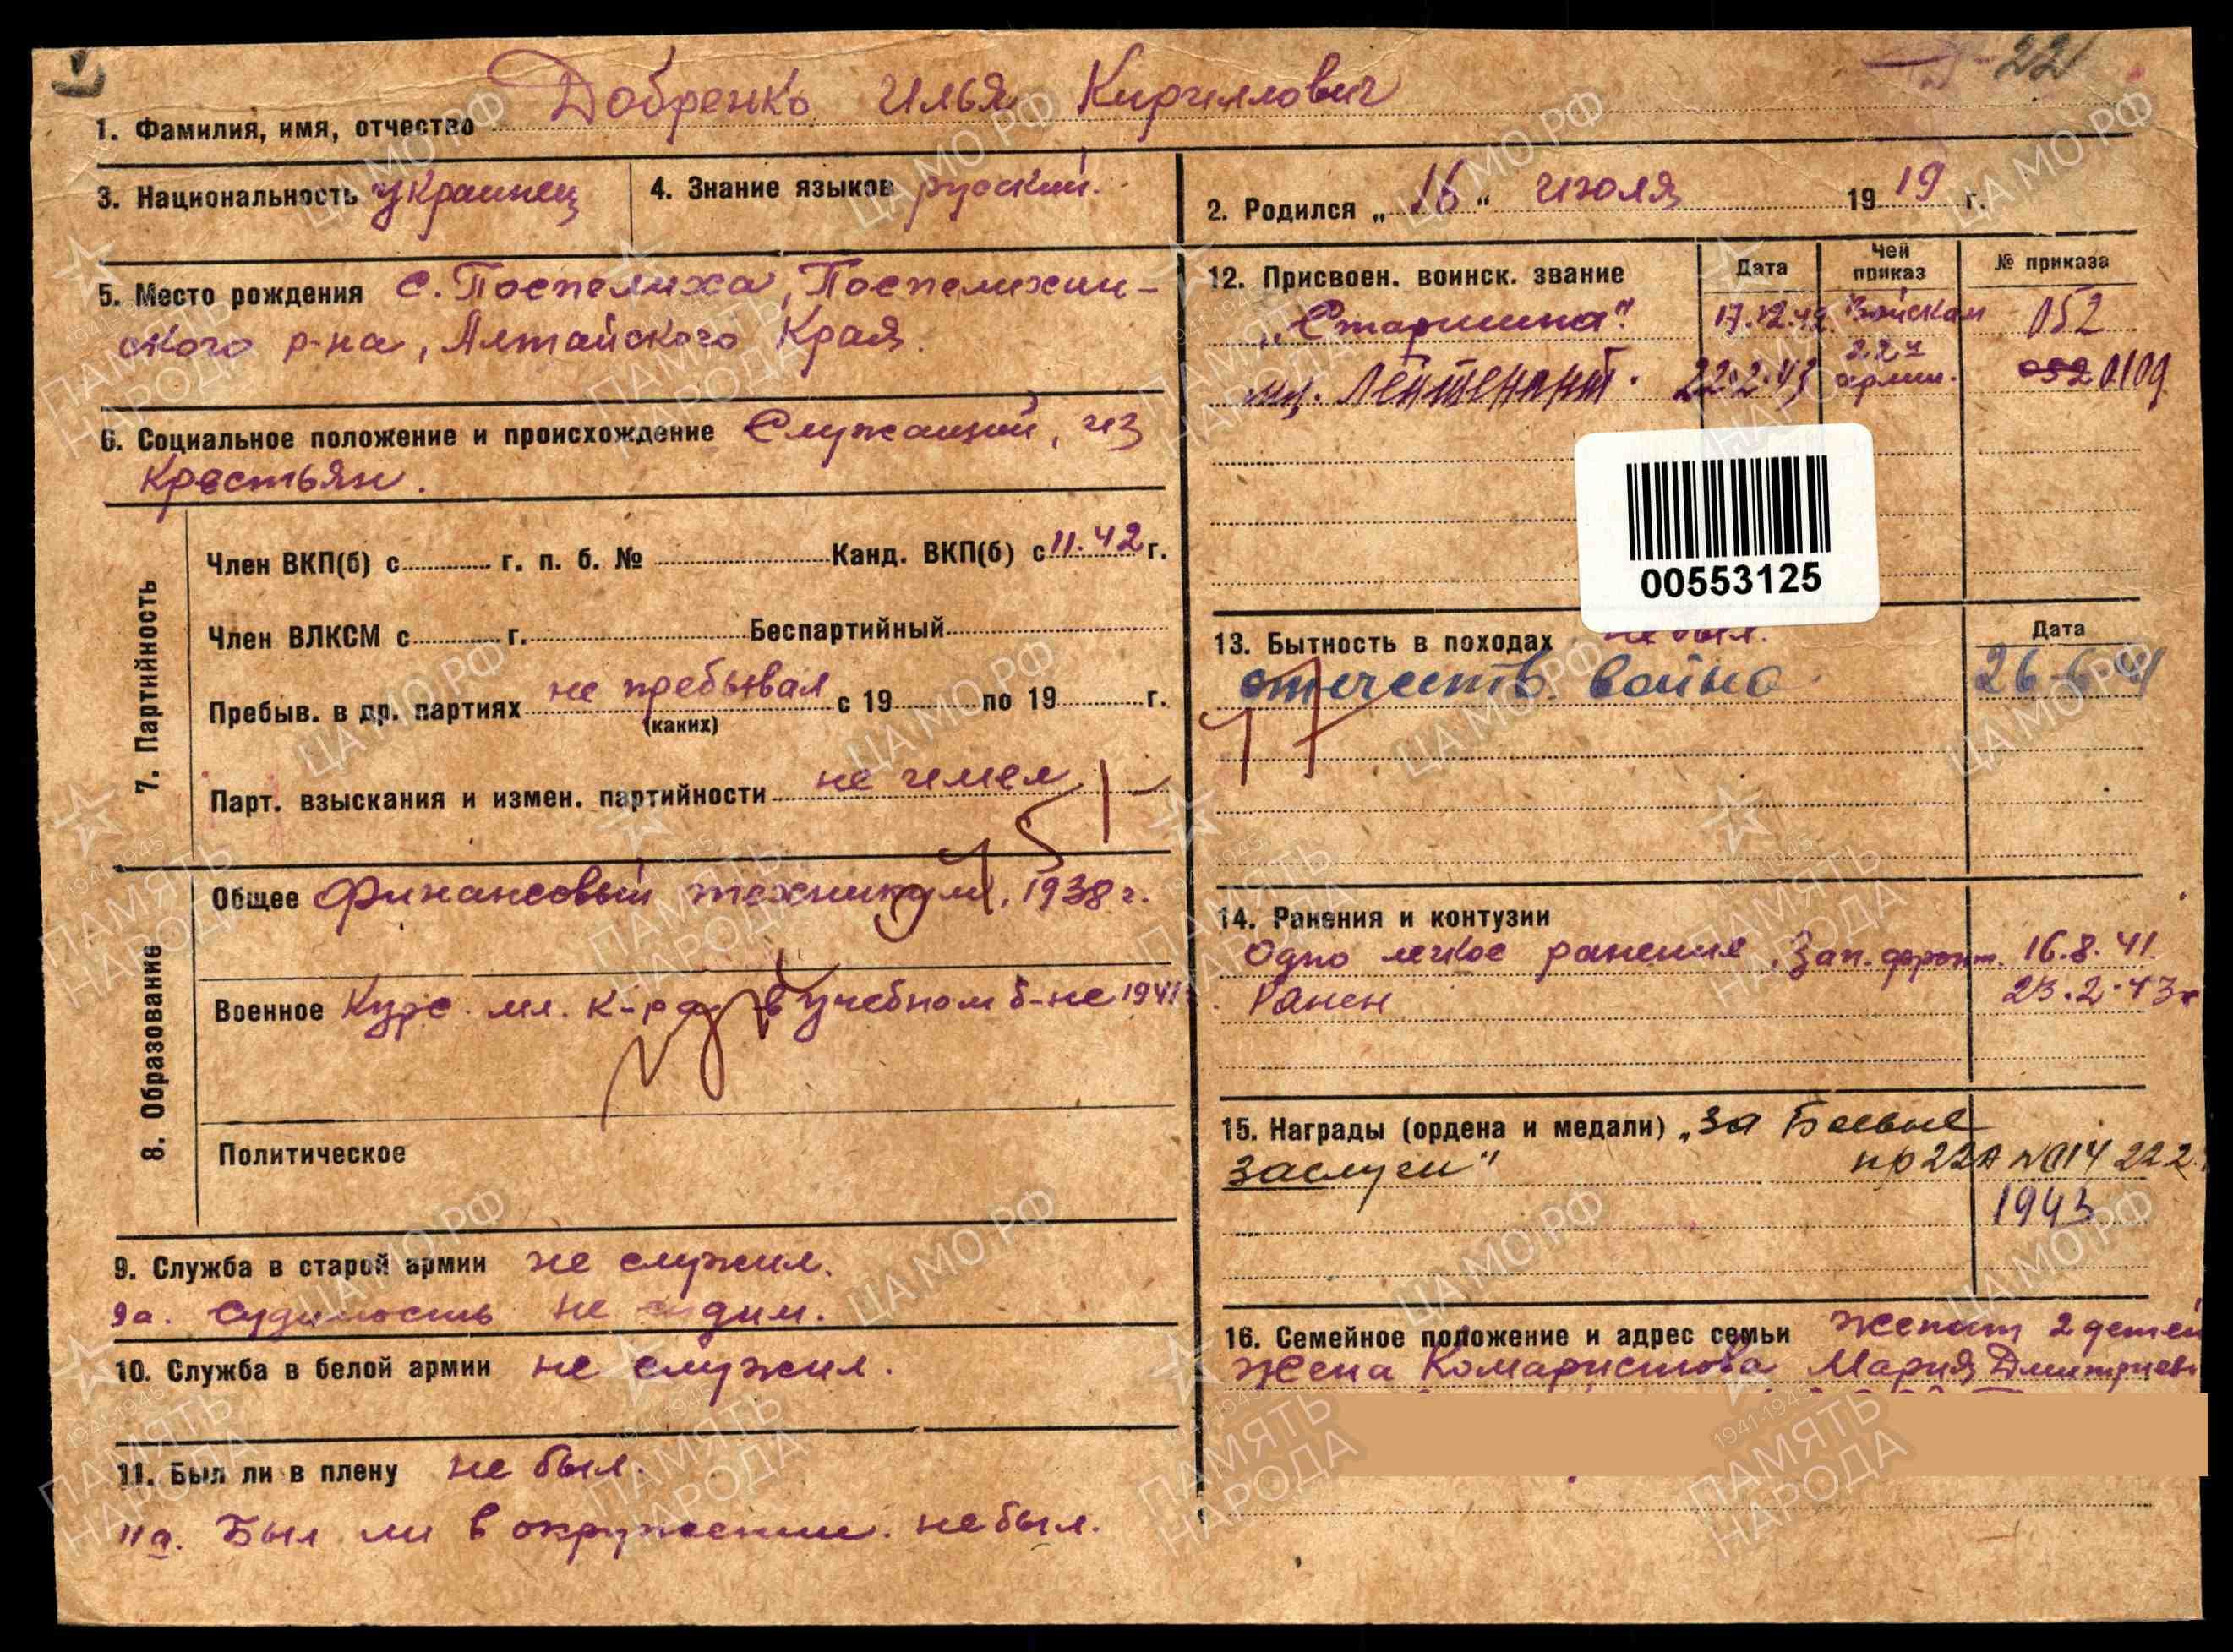 22
1. Фамилия, имя, отчество Добренко Илья Кириллович
3. Национальность украинец 4. Знание языков русский.
2. Родился „ 16 “ июля 19 19 г.
5. Место рождения с. Поспелиха, Поспелихин-
ского р-на, Алтайского Края.
6. Социальное положение и происхождение Служащий, из
крестьян.
7. Партийность
Член ВКП(б) с г. п. б. № Канд. ВКП(б) с 11.42 г.
Член ВЛКСМ с г. Беспартийный
Пребыв. в др. партиях не пребывал с 19 по 19 г.
(каких)
Парт. взыскания и измен. партийности не имел
8. Образование
Общее Финансовый техникум, 1938 г.
Военное Курс. мл. к-ра в учебном б-не 1941
Политическое
9. Служба в старой армии не служил.
9а. Судимость не судим.
10. Служба в белой армии не служил.
11. Был ли в плену не был.
11а. Был ли в окружении. не был.
12. Присвоен. воинск. звание Дата Чей приказ № приказа
„Старшина" 17.12.42 Войскам 052
мл. Лейтенант. 22.2.43 22й армии. 052 0109
00553125
13. Бытность в походах не был. Дата
отечеств. война 26-6-41
14. Ранения и контузии
Одно легкое ранение, Зап. фронт. 16.8.41.
Ранен 23.2.43г
15. Награды (ордена и медали) „за Боевые
заслуги" пр 22А №014 22 2.
1943
16. Семейное положение и адрес семьи Женат 2 детей
жена Комаристова Мария Дмитриев
ЦАМО.РФ
1941-1945
ПАМЯТЬ
НАРОДА